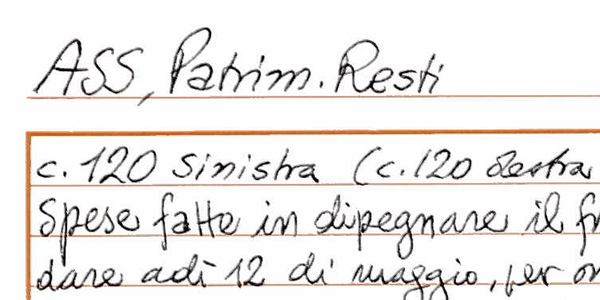 ASS, Patrim. Resti
c. 120 sinistra (c. 120 destra
Spese fatte in dipegnare il
dare adì 12 di maggio, per